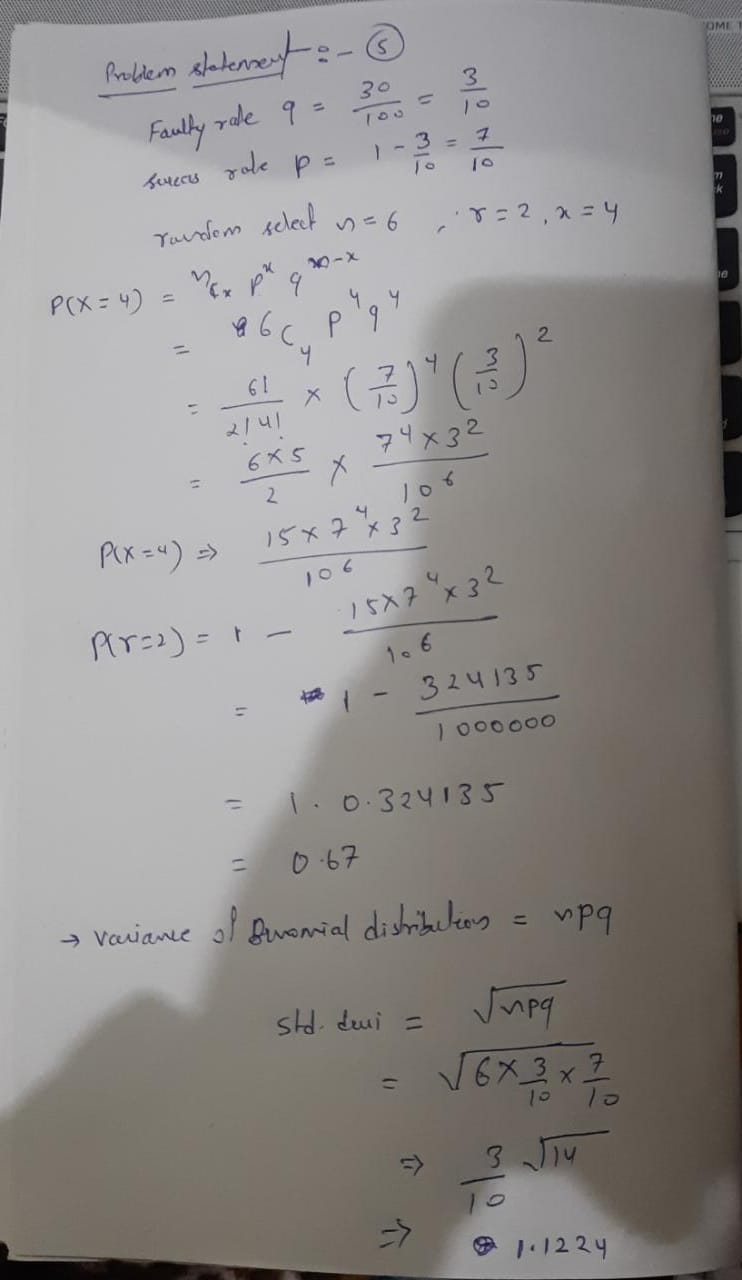 Problem statement :- ⑤
Faulty rate q = 30/100 = 3/10
success rate p = 1 - 3/10 = 7/10
random select n = 6 , r = 2, x = 4
P(X = 4) = ⁿCₓ pˣ qⁿ⁻ˣ
= 6C₄ p⁴ q⁴
= 6!/2!4! × (7/10)⁴ (3/10)²
= 6×5/2 × 7⁴×3²/10⁶
P(X = 4) ⇒ 15×7⁴×3²/10⁶
P(r=2) = 1 - 15×7⁴×3²/10⁶
= 1 - 324135/1000000
= 1. 0.324135
= 0.67
→ Variance of Binomial distributions = npq
std. devi = √npq
= √6×3/10×7/10
⇒ 3/10 √14
⇒ 1.1224